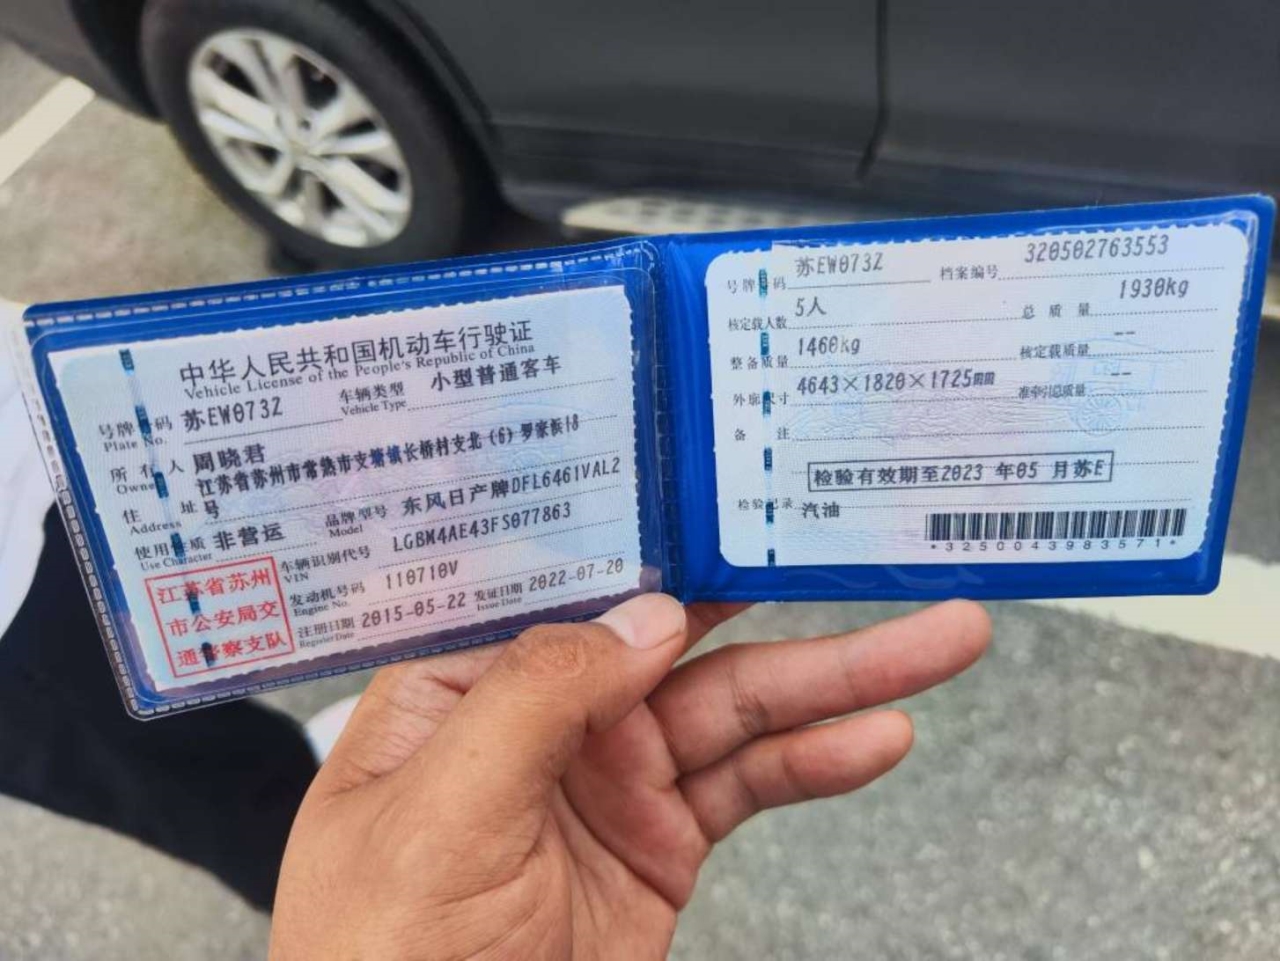 中华人民共和国机动车行驶证
Vehicle License of the People's Republic of China
号牌号码 苏EW073Z 车辆类型 小型普通客车
Plate No. Vehicle Type
所有人 周晓君
Owner
住址 江苏省苏州市常熟市支塘镇长桥村支北(6)罗家浜18
号
Address
使用性质 非营运 品牌型号 东风日产牌DFL6461VAL2
Use Character Model
车辆识别代号 LGBM4AE43FS077863
VIN
发动机号码 110710V
Engine No.
注册日期 2015-05-22 发证日期 2022-07-20
Register Date Issue Date
江苏省苏州
市公安局交
通警察支队
号牌号码 苏EW073Z 档案编号 320502763553
核定载人数 5人 总质量 1930kg
整备质量 1460kg 核定载质量 --
外廓尺寸 4643×1820×1725mm 准牵引总质量 --
备注
检验有效期至2023 年05 月苏E
检验记录 汽油
*3250043983571*